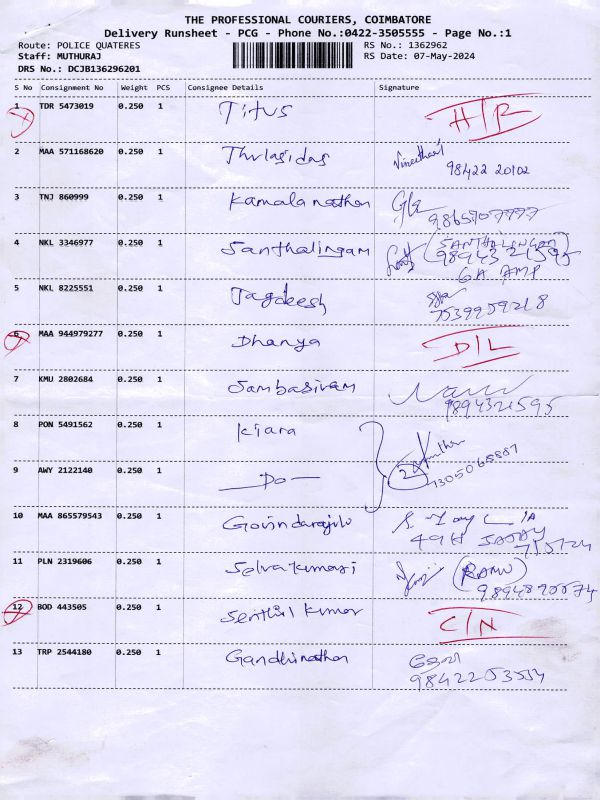 THE PROFESSIONAL COURIERS, COIMBATORE
Delivery Runsheet - PCG - Phone No.:0422-3505555 - Page No.:1
Route: POLICE QUATERES RS No.: 1362962
Staff: MUTHURAJ RS Date: 07-May-2024
DRS No.: DCJB136296201
S No Consignment No Weight PCS Consignee Details Signature
1 TDR 5473019 0.250 1 Titus H/R
2 MAA 571168620 0.250 1 Thulasidas
98422 20102
3 TNJ 860999 0.250 1 Kamala nathan
9865707777
4 NKL 3346977 0.250 1 Santhalingam (SANTHALINGAM)
9894321595
5 NKL 8225551 0.250 1 Jagdeesh
7539959218
6 MAA 944979277 0.250 1 Dhanya D/L
7 KMU 2802684 0.250 1 Sambasivam
9894321595
8 PON 5491562 0.250 1 Kiara
9 AWY 2122140 0.250 1 —Do— 2
10 MAA 865579543 0.250 1 Govindarajilu
11 PLN 2319606 0.250 1 Selvakumari (RAMU)
12 BOD 443505 0.250 1 Senthil kumar C/N
13 TRP 2544180 0.250 1 Gandhinathan